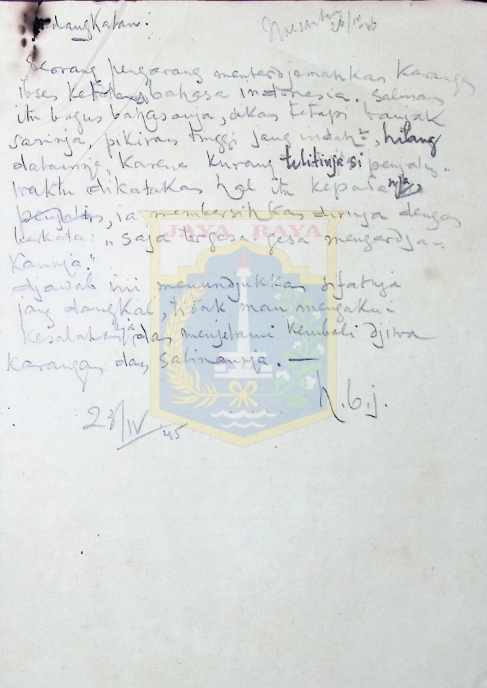 Kedangkalan:
Seorang pengarang menterdjemahkan karangan
Ibsen ke bahasa Indonesia. Salinan
itu bagus bahasanja, akan tetapi banjak
sarinja, pikiran tinggi jang indah², hilang
dalamnja, karena kurang telitinja si penjalin.
Waktu dikatakan hal itu kepadanja
penjalin, ia membersihkan dirinja dengan
berkata: „Saja tergesa-gesa mengerdja-
kannja."
Djawab ini menundjukkan sifatnja
jang dangkal, tidak mau mengaku
kesalahannja dan menjelami kembali djiwa
karangan dan salinannja. —
H.B.J.
28/IV 45
JAYA RAYA